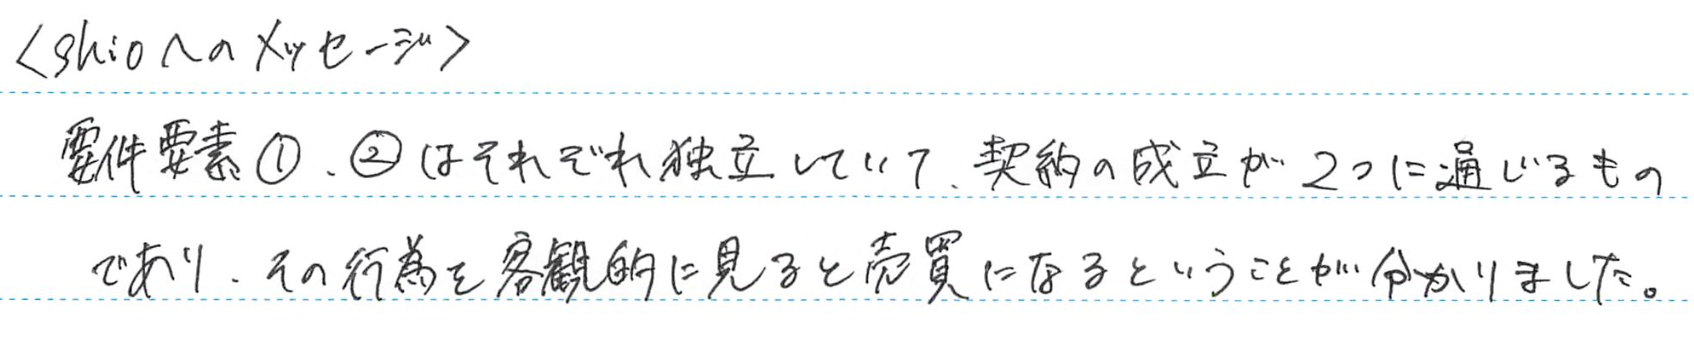 <shioへのメッセージ>
要件要素①、②はそれぞれ独立していて、契約の成立が2つに通じるもの
であり、その行為を客観的に見ると売買になるということが分かりました。